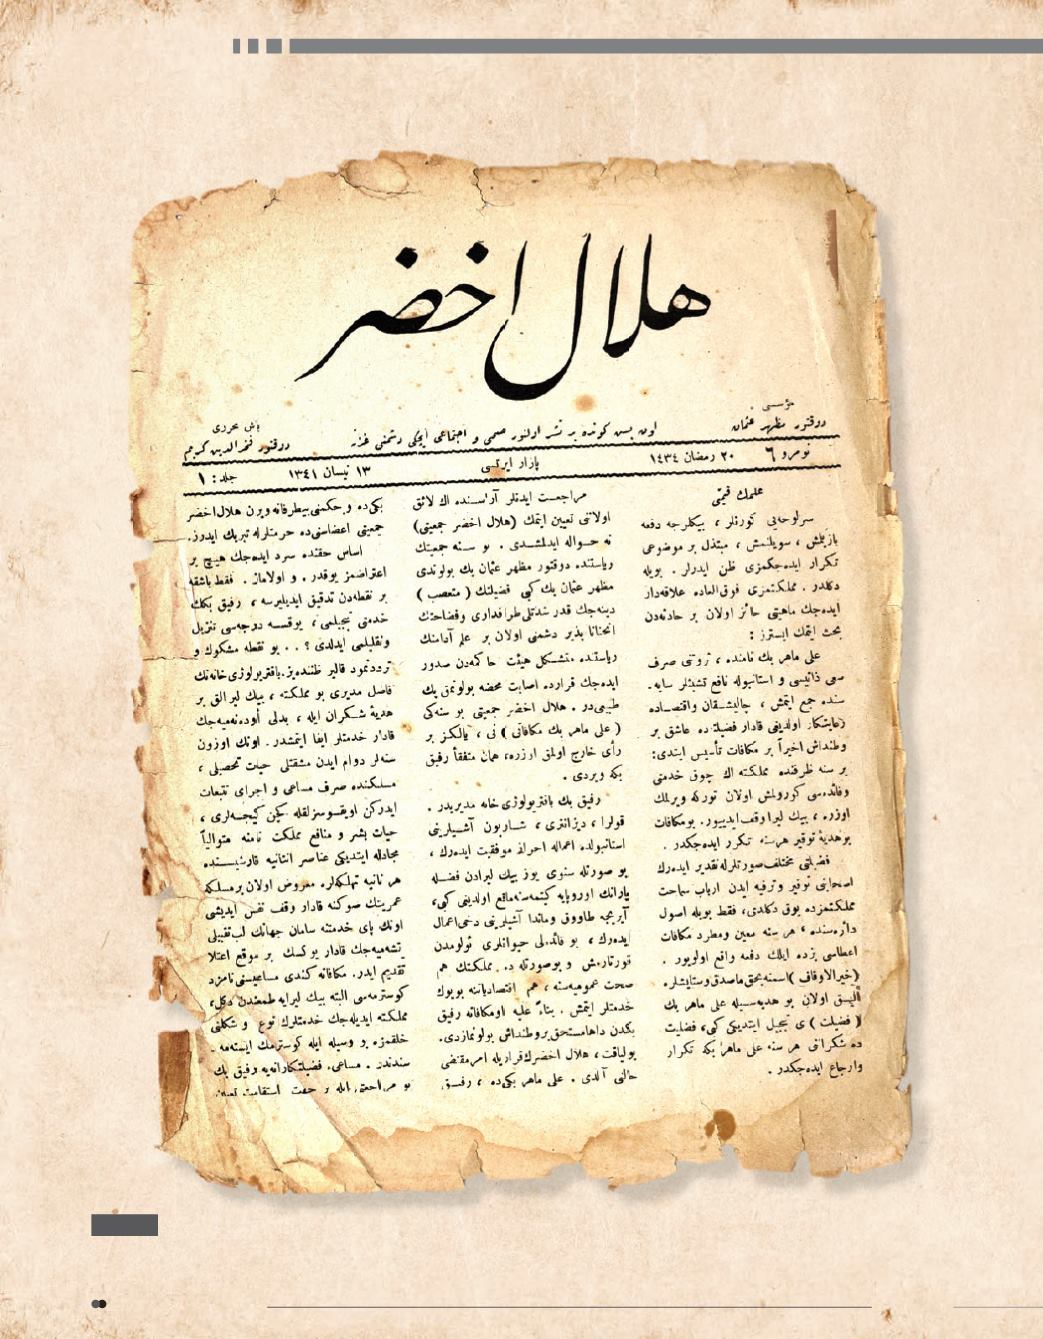 هلال اخضر
مؤسسی
دوقتور مظهر عثمان
اون بش كونده بر نشر اولنور صحی و اجتماعی ایچكی دشمنی غزته
باش محرری
دوقتور فخرالدین كریم
نومرو ٦
٢٠ رمضان
بازار ایرتسی
١٣ نیسان ١٣٤١
جلد: ١
بازیلمش ، سویلنمش ، مبتذل بر موضوعی
تكرار ایده‌جكمزی ظن ایدرلر . بویله
دكلدر . مملكتمزی فوق‌العاده علاقه‌دار
ایده‌جك ماهیتی حائز اولان بر حادثه‌دن
بحث ایتمك ایسترز :
علی ماهر بك نامنده ، ثروتی صرف
سنده جمع ایتمش ، چالیشقان واقتصاده
وطنداش اخیراً بر مكافات تأسیس ایتدی:
بر سنه ظرفنده مملكته اك چوق خدمتی
وفائده‌سی كورولمش اولان توركه ویرلمك
اوزره ، بیك لیرا وقف ایدییور. بومكافات
بوهدیهٔ توقیر هرسنه تكرر ایده‌جكدر .
فضیلتی مختلف صورتلرله تقدیر ایده‌رك
اصحابنی توقیر وترفیه ایدن ارباب سماحت
مملكتمزده یوق دكلدی، فقط بویله اصول
دائره‌سنده ، هر سنه معین ومطرد مكافات
اعطاسی بزده ایلك دفعه واقع اولویور .
الیق اولان بو هدیه‌سیله علی ماهر بك
( فضیلت ) ی تبجیل ایتدیكی كبی، فضیلت
ده شكرانی هر سنه علی ماهر بكه تكرار
وارجاع ایده‌جكدر .
مراجعت ایدنلر آراسنده اك لائق
اولانی تعیین ایتمك (هلال اخضر جمعیتی)
نه حواله ایدلمشدی . بو سنه جمعیتك
ریاستنده دوقتور مظهر عثمان بك بولوندی
مظهر عثمان بك كبی فضیلتك ( متعصب )
دینه‌جك قدر شدتلی طرافداری وفضاحتك
انحنا ناپذیر دشمنی اولان بر علم آدامنك
ریاستنده متشكل هیئت حاكمه‌دن صدور
ایده‌جك قرارده اصابت محضه بولونمق پك
طبیعی‌در . هلال اخضر جمعیتی بو سنه‌كی
( علی ماهر بك مكافاتی ) نی ، یالكز بر
رأی خارج اولمق اوزره، همان متفقاً رفیق
بكه ویردی .
رفیق بك باقتریولوژی خانه مدیریدر .
قولرا ، دیزانتری ، شاربون آشیلرینی
استانبولده اعماله احراز موفقیت ایده‌رك ،
بو صورتله سنوی یوز بیك لیرادن فضله
پارانك اوروپایه كیتمه‌سنه مانع اولدیغی كبی،
آیریجه طاووق وماندا آشیلرینی دخی اعمال
ایده‌رك ، بو فائده‌لی حیوانلری ئولومدن
قورتارمش و بوصورتله ده مملكتك هم
صحت عمومیه‌سنه ، هم اقتصادیاتنه بویوك
خدمتلر ایتمش . بناءً علیه اومكافاته رفیق
بكدن داها مستحق بر وطنداش بولونمازدی.
بولیاقت ، هلال اخضرك قراریله امر مقتضی
حالنی آلدی . علی ماهر بكی‌ده ، رفیق
بكی‌ده و حكمنی بیطرفانه ویرن هلال اخضر
جمعیتی اعضاسنی‌ده حرمتلرله تبریك ایدرز.
اساس حقنده سرد ایده‌جك هیچ بر
اعتراضمز یوقدر . و اولاماز . فقط باشقه
بر نقطه‌دن تدقیق ایدیلیرسه ، رفیق بكك
خدمتی تبجیلمی ، یوقسه درجه‌سی تنزیل
وتقلیلمی ایدلدی ؟ . . بو نقطه مشكوك و
ترددنمود قالیر ظننده‌یز. باقتریولوژی خانه‌نك
فاضل مدیری بو مملكته ، بیك لیرالق بر
هدیهٔ شكران ایله ، بدلی أوده‌نه‌میه‌جك
قادار خدمتلر ایفا ایتمشدر. اونك اوزون
سنه‌لر دوام ایدن مشقتلی حیات تحصیلی ،
مسلكنده صرف مساعی و اجرای تتبعات
ایدركن اویقوسزلقله كچن كیجه‌لری ،
حیات بشر و منافع مملكت نامنه متوالیاً
مجادله ایتدیكی عناصر انتانیه قارشیسنده
هر ثانیه تهلكه‌لره معروض اولان بر مسلكه
عمرینك صوكنه قادار وقف نفس ایدیشی
تقدیم ایدر. مكافاته كندی مساعیسنی نامزد
كوسترمه‌سی البته بیك لیرایه طمعندن دكل،
مملكته ایدیله‌جك خدمتلرك نوع و شكلنی
خلقمزه بو وسیله ایله كوسترمك ایسته‌مه
سندندر . مساعی فضیلتكارانه‌یه رفیق بك